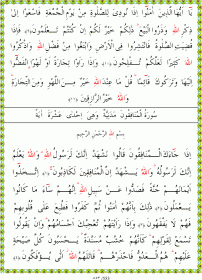 يَا أَيُّهَا الَّذِينَ آمَنُوا إِذَا نُودِيَ لِلصَّلٰوةِ مِنْ يَوْمِ الْجُمُعَةِ فَاسْعَوْا إِلَى
ذِكْرِ اللهِ وَذَرُوا الْبَيْعَ ذٰلِكُمْ خَيْرٌ لَكُمْ إِنْ كُنْتُمْ تَعْلَمُونَ فَإِذَا
قُضِيَتِ الصَّلٰوةُ فَانْتَشِرُوا فِي الْأَرْضِ وَابْتَغُوا مِنْ فَضْلِ اللهِ وَاذْكُرُوا
اللهَ كَثِيرًا لَعَلَّكُمْ تُفْلِحُونَ وَإِذَا رَأَوْا تِجَارَةً أَوْ لَهْوًا انْفَضُّوا
إِلَيْهَا وَتَرَكُوكَ قَائِمًا قُلْ مَا عِنْدَ اللهِ خَيْرٌ مِنَ اللَّهْوِ وَمِنَ التِّجَارَةِ
وَاللهُ خَيْرُ الرَّازِقِينَ
سُورَةُ الْمُنَافِقُونَ مَدَنِيَّةٌ وَهِيَ إِحْدٰى عَشْرَةَ آيَةً
بِسْمِ اللهِ الرَّحْمٰنِ الرَّحِيمِ
إِذَا جَاءَكَ الْمُنَافِقُونَ قَالُوا نَشْهَدُ إِنَّكَ لَرَسُولُ اللهِ وَاللهُ يَعْلَمُ
إِنَّكَ لَرَسُولُهُ وَاللهُ يَشْهَدُ إِنَّ الْمُنَافِقِينَ لَكَاذِبُونَ اِتَّخَذُوا
أَيْمَانَهُمْ جُنَّةً فَصَدُّوا عَنْ سَبِيلِ اللهِ إِنَّهُمْ سَاءَ مَا كَانُوا
يَعْمَلُونَ ذٰلِكَ بِأَنَّهُمْ آمَنُوا ثُمَّ كَفَرُوا فَطُبِعَ عَلٰى قُلُوبِهِمْ
فَهُمْ لَا يَفْقَهُونَ وَإِذَا رَأَيْتَهُمْ تُعْجِبُكَ أَجْسَامُهُمْ وَإِنْ يَقُولُوا
تَسْمَعْ لِقَوْلِهِمْ كَأَنَّهُمْ خُشُبٌ مُسَنَّدَةٌ يَحْسَبُونَ كُلَّ صَيْحَةٍ
عَلَيْهِمْ هُمُ الْعَدُوُّ فَاحْذَرْهُمْ قَاتَلَهُمُ اللهُ أَنّٰى يُؤْفَكُونَ